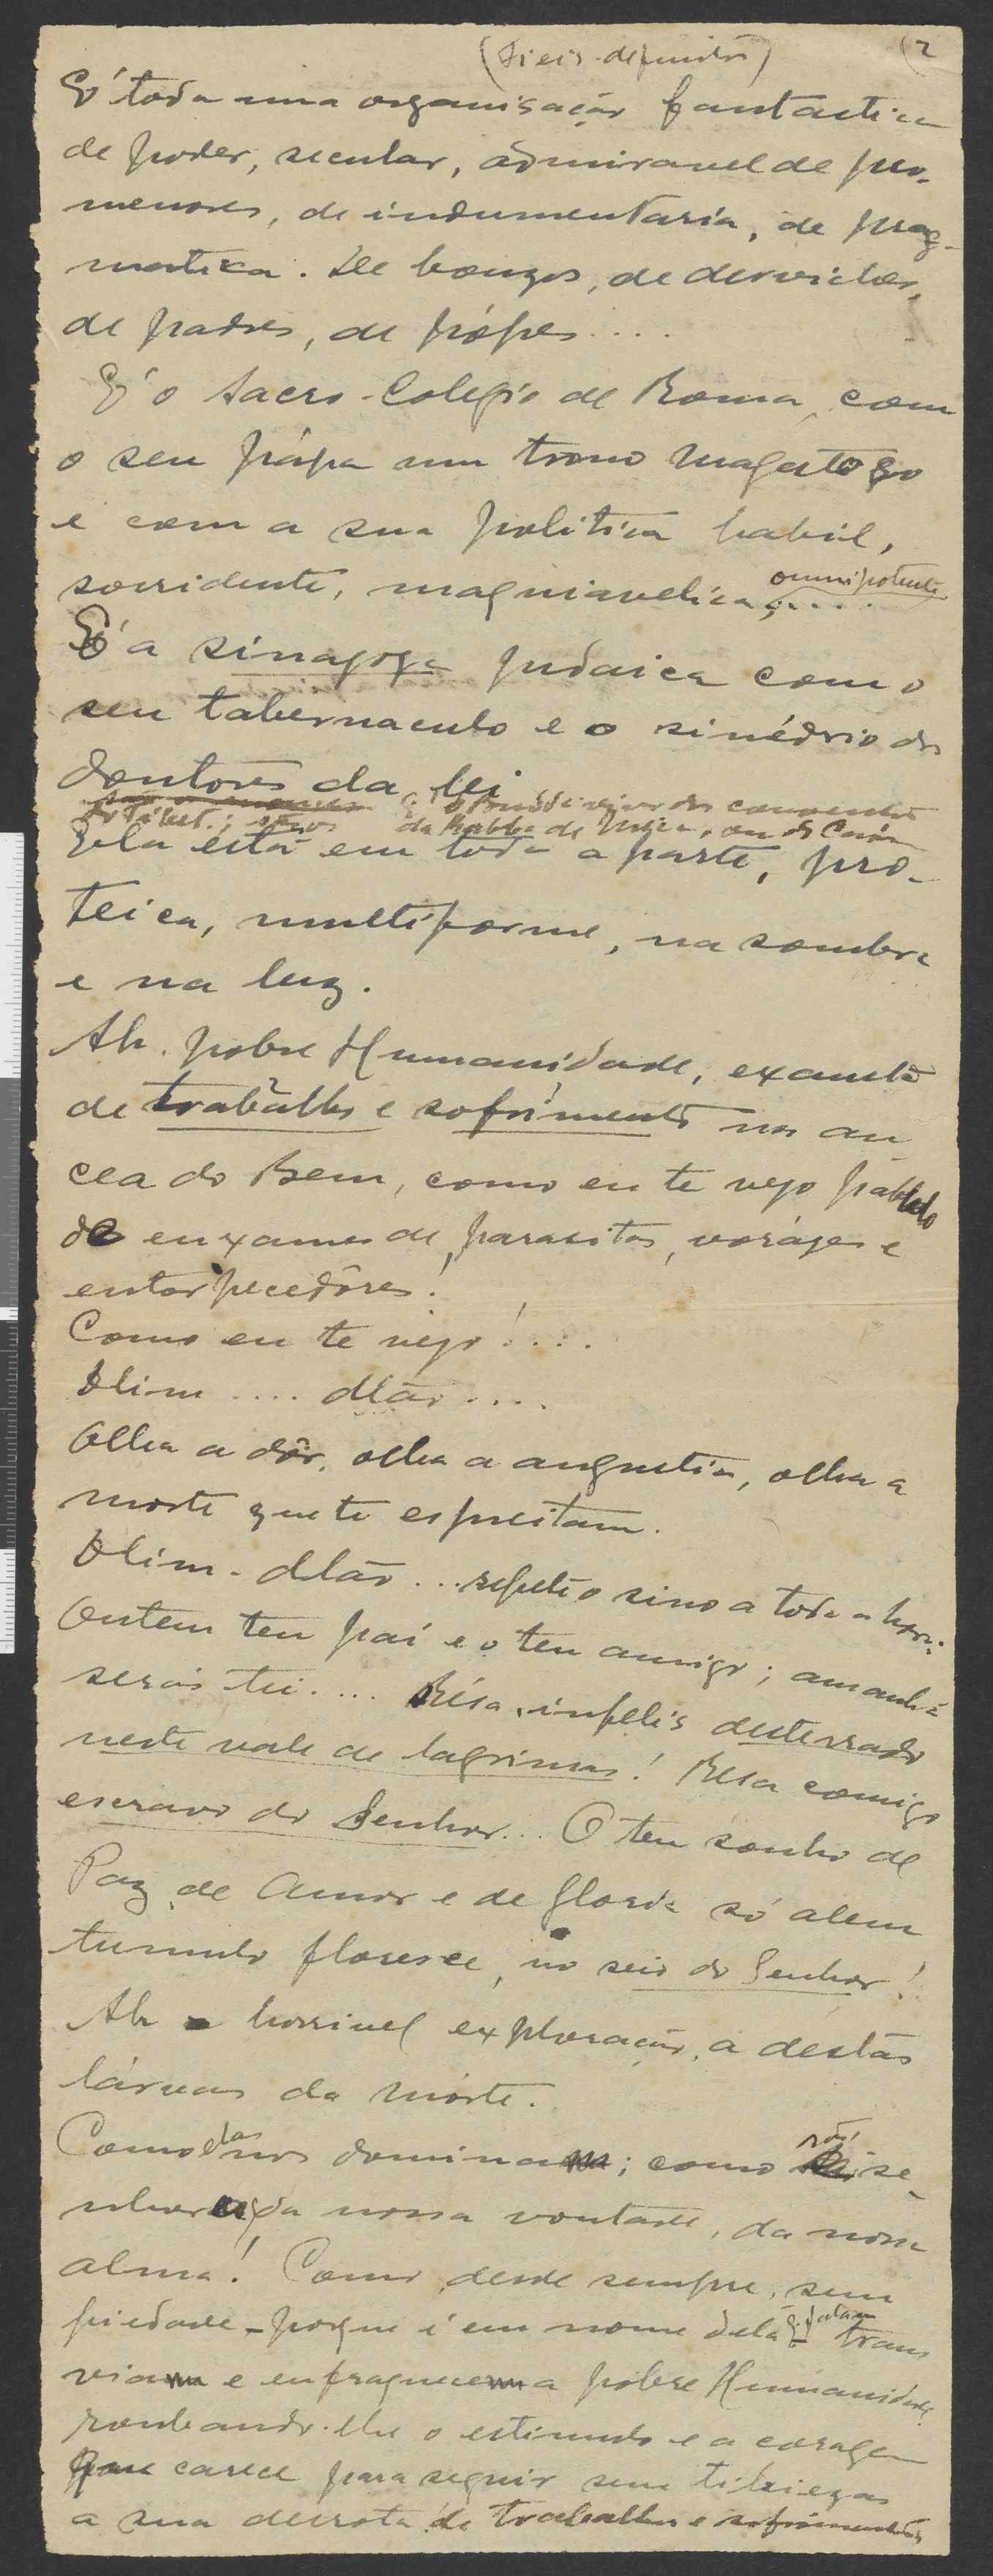 (2
E' toda uma organisação fantastica
de poder, secular, admiravel de por-
menores, de indumentaria, de prag-
matica. De bonzos, de derviches,
de padres, de pópes....
E' o Sacro-Colegio de Roma, com
o seu pápa num trono magestoso
e com a sua politica habil,
omnipotente
sorridente, maquiavelica,....
E' a sinagoga judaica com o
seu tabernaculo e o sinédrio dos
doutores da lei
da Kabba de Meca, ou do Cairo
Ela está em toda a parte, pro-
teica, multiforme, na sombra
e na luz.
Ah. pobre Humanidade, exausta
de trabalhos e sofrimentos na an
cea do Bem, como eu te vejo
de enxames de parasitas, vorázes e
entorpecedôres!
Como eu te vejo!....
Dlim.... dlão....
Olha a dôr, olha a angustia, olha a
morte que te espreitam.
Dlim-dlão... repete o sino a toda a hora:
Ontem teu pai e o teu amigo; amanhã
serás tu.... Résa, infelis desterrado
neste vale de lagrimas! Resa comigo
escravo do Senhor... O teu sonho de
Paz, de Amor e de Gloria só alem
tumulo floresce, no seio do Senhor!
Ah horrivel exploração, a destas
lárvas da mórte.
las
Como e nos domina; como se-
nhora da nossa vontade, da nossa
alma! Como, desde sempre, sem
piedade - porque é em nome dela q. falam trans
viam e enfraquecem a pobre Humanidade
roubando-lhe o estimulo e a coragem
que carece para seguir sem tibiezas
a sua derrota de trabalhos e sofrimentos